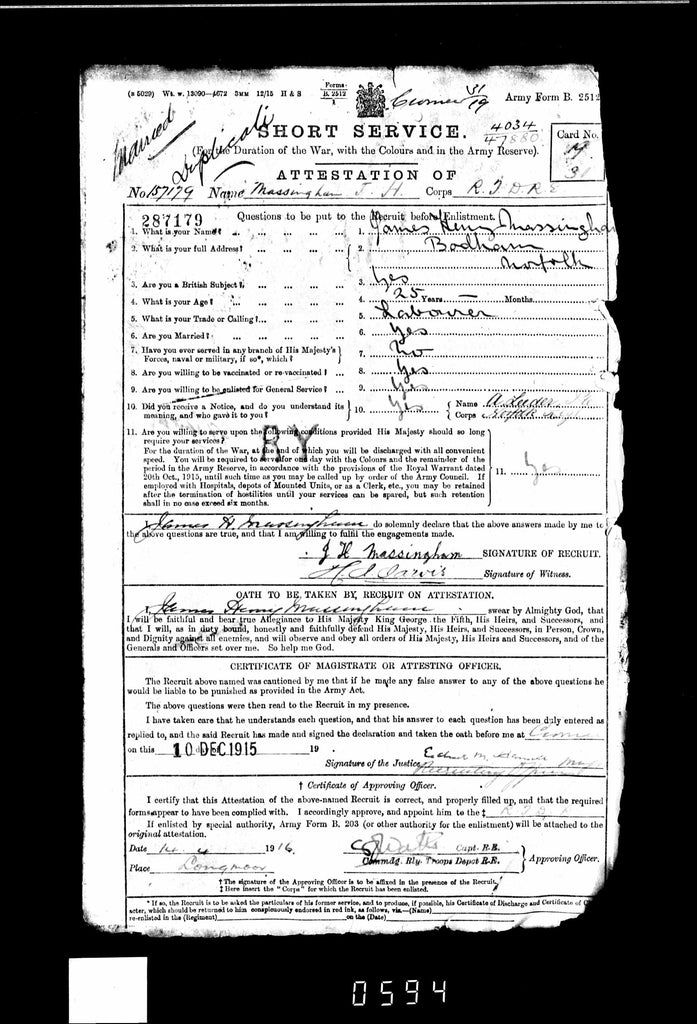 (B 5029) Wt. w. 13090—4672 3MM 12/15 H & S Forms B. 2512 1 Cromer 31/19 Army Form B. 2512
Married
Duplicate
SHORT SERVICE. 4034 47880 Card No.
(For the Duration of the War, with the Colours and in the Army Reserve). 31
ATTESTATION OF
No. 157179 Name Massingham J. H. Corps
287179 Questions to be put to the Recruit before Enlistment.
1. What is your Name? ... 1. James Henry Massingham
2. What is your full Address? 2. Bodham
Norfolk
3. Are you a British Subject? ... 3. Yes
4. What is your Age? ... 4. 25 Years — Months.
5. What is your Trade or Calling? ... 5. Labourer
6. Are you Married? ... 6. Yes
7. Have you ever served in any branch of His Majesty's
Forces, naval or military, if so*, which? 7. No
8. Are you willing to be vaccinated or re-vaccinated? ... 8. Yes
9. Are you willing to be enlisted for General Service? ... 9. Yes
10. Did you receive a Notice, and do you understand its
meaning, and who gave it to you? 10. Yes Name
Corps
11. Are you willing to serve upon the following conditions provided His Majesty should so long
require your services?
RY
For the duration of the War, at the end of which you will be discharged with all convenient
speed. You will be required to serve for one day with the Colours and the remainder of the
period in the Army Reserve, in accordance with the provisions of the Royal Warrant dated
20th Oct., 1915, until such time as you may be called up by order of the Army Council. If
employed with Hospitals, depots of Mounted Units, or as a Clerk, etc., you may be retained
after the termination of hostilities until your services can be spared, but such retention
shall in no case exceed six months.
11. Yes
James H. Massingham do solemnly declare that the above answers made by me to
the above questions are true, and that I am willing to fulfil the engagements made.
J H Massingham SIGNATURE OF RECRUIT.
Signature of Witness.
OATH TO BE TAKEN BY RECRUIT ON ATTESTATION.
I, James Henry Massingham swear by Almighty God, that
I will be faithful and bear true Allegiance to His Majesty King George the Fifth, His Heirs, and Successors, and
that I will, as in duty bound, honestly and faithfully defend His Majesty, His Heirs, and Successors, in Person, Crown,
and Dignity against all enemies, and will observe and obey all orders of His Majesty, His Heirs and Successors, and of the
Generals and Officers set over me. So help me God.
CERTIFICATE OF MAGISTRATE OR ATTESTING OFFICER.
The Recruit above named was cautioned by me that if he made any false answer to any of the above questions he
would be liable to be punished as provided in the Army Act.
The above questions were then read to the Recruit in my presence.
I have taken care that he understands each question, and that his answer to each question has been duly entered as
replied to, and the said Recruit has made and signed the declaration and taken the oath before me at
on this 10 DEC 1915 19 .
Signature of the Justice
† Certificate of Approving Officer.
I certify that this Attestation of the above-named Recruit is correct, and properly filled up, and that the required
forms appear to have been complied with. I accordingly approve, and appoint him to the ‡
If enlisted by special authority, Army Form B. 203 (or other authority for the enlistment) will be attached to the
original attestation.
Date 14. 4 1916. Capt. R.E.
Place Longmoor Commdg. Rly. Troops Depot R.E. Approving Officer.
† The signature of the Approving Officer is to be affixed in the presence of the Recruit.
‡ Here insert the "Corps" for which the Recruit has been enlisted.
* If so, the Recruit is to be asked the particulars of his former service, and to produce, if possible, his Certificate of Discharge and Certificate of
acter, which should be returned to him conspicuously endorsed in red ink, as follows, viz.—(Name)
re-enlisted in the (Regiment) on the (Date)
0594